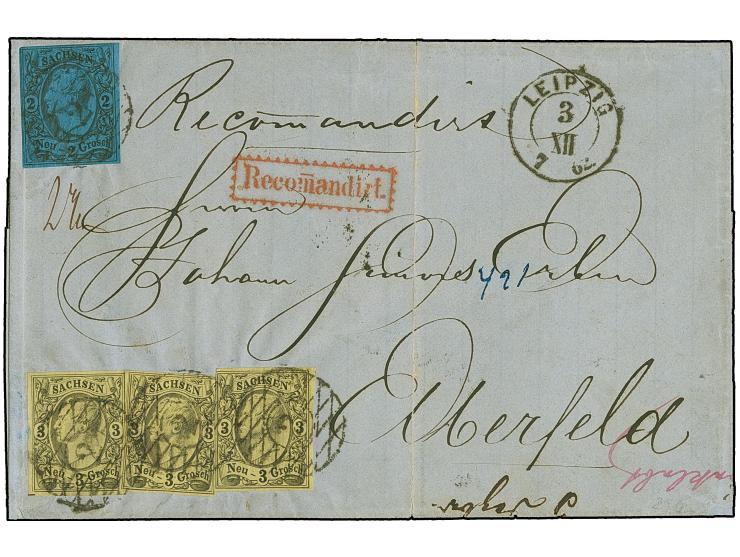 SACHSEN
2 2
Neu - 2 Grosch
Recomandirt
LEIPZIG
3
XII
7 62
Recomandirt.
Herrn
Johann
421
Elberfeld
SACHSEN SACHSEN SACHSEN
3 3 3 3 3 3
Neu - 3 Grosch Neu - 3 Grosch Neu - 3 Grosch